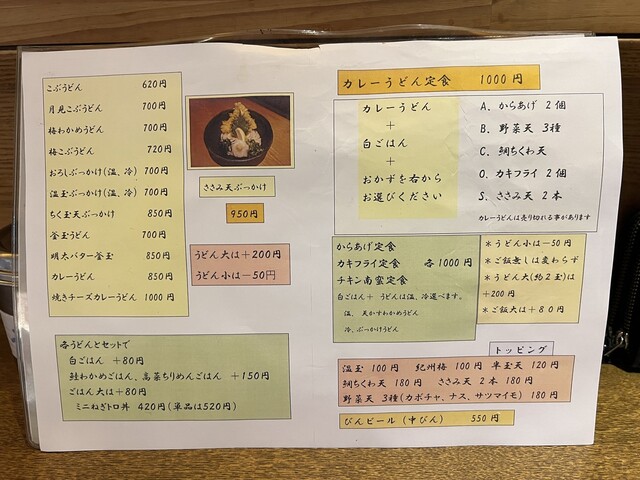 こぶうどん 620円
月見こぶうどん 700円
梅わかめうどん 700円
梅こぶうどん 720円
おろしぶっかけ(温、冷) 700円
温玉ぶっかけ(温、冷) 700円
ちく玉天ぶっかけ 850円
釜玉うどん 700円
明太バター釜玉 850円
カレーうどん 850円
焼きチーズカレーうどん 1000円
ささみ天ぶっかけ
950円
うどん大は+200円
うどん小は-50円
各うどんとセットで
白ごはん +80円
鮭わかめごはん、高菜ちりめんごはん +150円
ごはん大は+80円
ミニねぎトロ丼 420円(単品は520円)
カレーうどん定食 1000円
カレーうどん
+
白ごはん
+
おかずを右から
お選びください
A. からあげ 2個
B. 野菜天 3種
C. 鯛ちくわ天
O. カキフライ 2個
S. ささみ天 2本
カレーうどんは売り切れる事があります
からあげ定食
カキフライ定食 各1000円
チキン南蛮定食
白ごはん+ うどんは温、冷選べます。
温、天かすわかめうどん
冷、ぶっかけうどん
*うどん小は-50円
*ご飯無しは変わらず
*うどん大(約2玉)は
+200円
*ご飯大は+80円
トッピング
温玉 100円 紀州梅 100円 半玉天 120円
鯛ちくわ天 180円 ささみ天 2本 180円
野菜天 3種(カボチャ、ナス、サツマイモ) 180円
びんビール (中びん) 550円